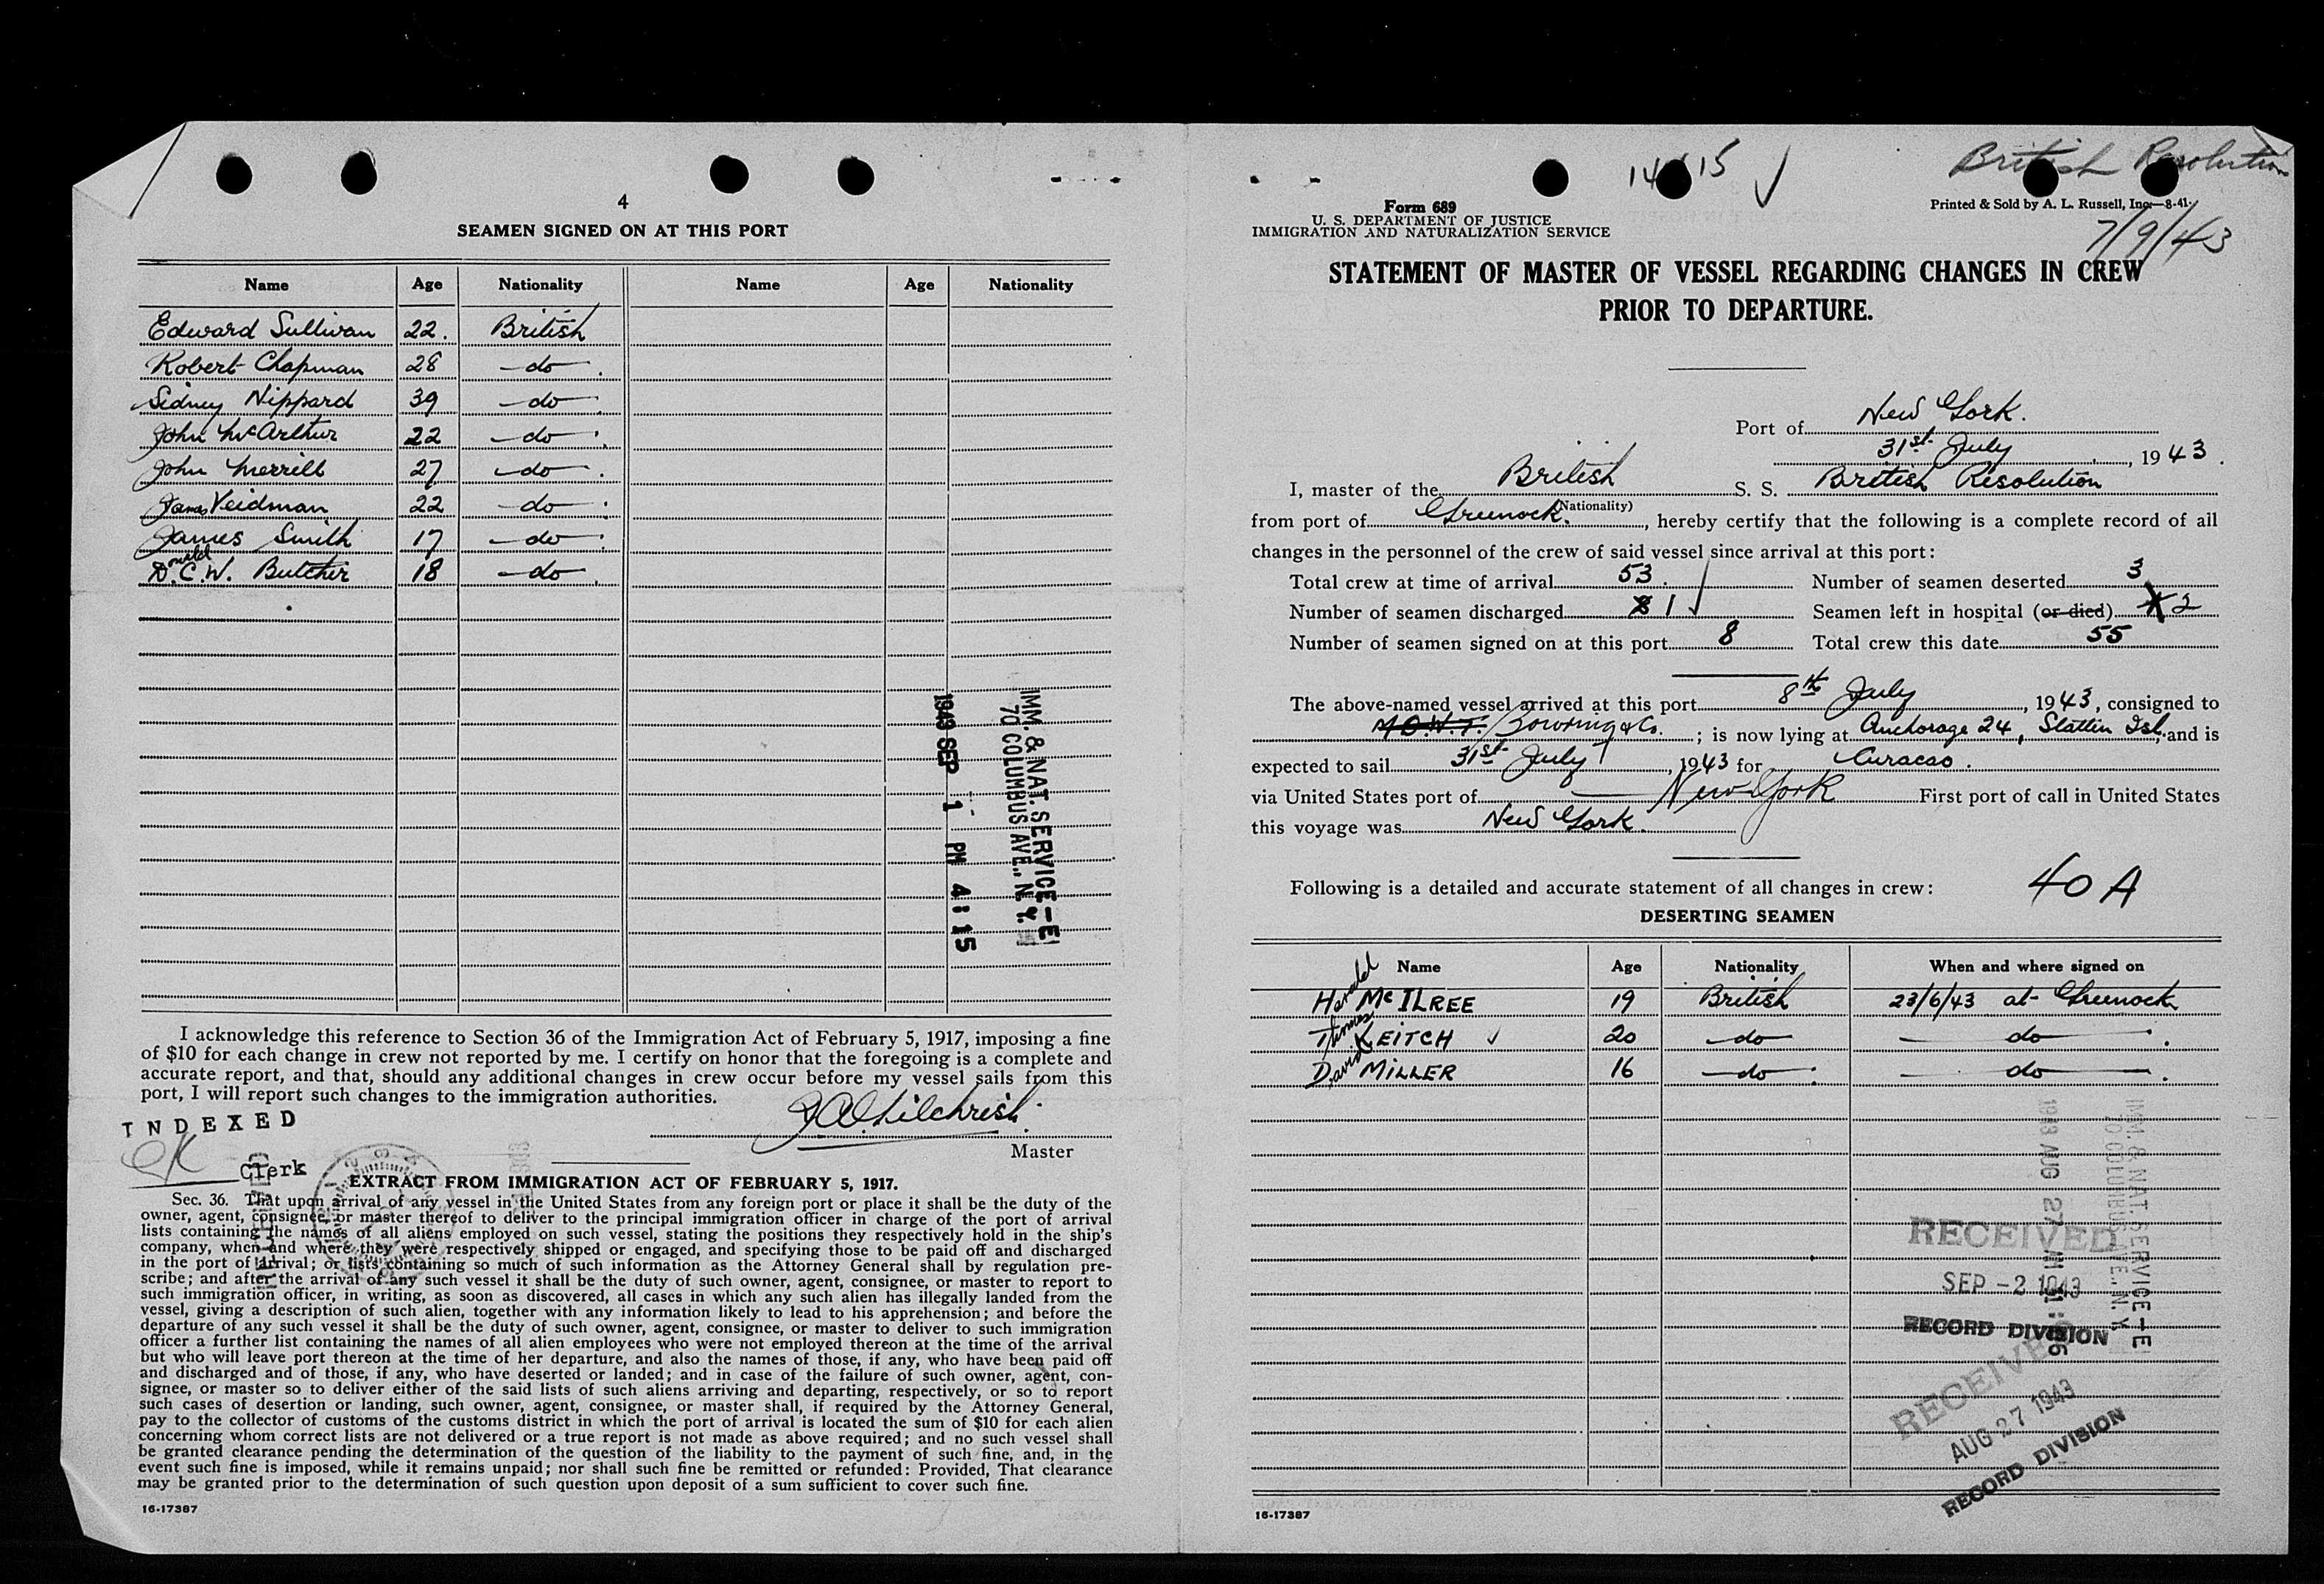 4
SEAMEN SIGNED ON AT THIS PORT
Name Age Nationality Name Age Nationality
Edward Sullivan 22. British
Robert Chapman 28 - do - .
Sidney Nippard 39 - do - .
John McArthur 22 - do - .
John Merrill 27 - do - .
James Veidman 22 - do - .
James Smith 17 - do - .
Donald C.W. Butcher 18 - do - .
IMM. & NAT. SERVICE - E
70 COLUMBUS AVE., N. Y.
1943 SEP 1 PM 4:15
I acknowledge this reference to Section 36 of the Immigration Act of February 5, 1917, imposing a fine
of $10 for each change in crew not reported by me. I certify on honor that the foregoing is a complete and
accurate report, and that, should any additional changes in crew occur before my vessel sails from this
port, I will report such changes to the immigration authorities.
INDEXED
Clerk
Gilchrist.
Master
EXTRACT FROM IMMIGRATION ACT OF FEBRUARY 5, 1917.
Sec. 36. That upon arrival of any vessel in the United States from any foreign port or place it shall be the duty of the
owner, agent, consignee, or master thereof to deliver to the principal immigration officer in charge of the port of arrival
lists containing the names of all aliens employed on such vessel, stating the positions they respectively hold in the ship's
company, when and where they were respectively shipped or engaged, and specifying those to be paid off and discharged
in the port of arrival; or lists containing so much of such information as the Attorney General shall by regulation pre-
scribe; and after the arrival of any such vessel it shall be the duty of such owner, agent, consignee, or master to report to
such immigration officer, in writing, as soon as discovered, all cases in which any such alien has illegally landed from the
vessel, giving a description of such alien, together with any information likely to lead to his apprehension; and before the
departure of any such vessel it shall be the duty of such owner, agent, consignee, or master to deliver to such immigration
officer a further list containing the names of all alien employees who were not employed thereon at the time of the arrival
but who will leave port thereon at the time of her departure, and also the names of those, if any, who have been paid off
and discharged and of those, if any, who have deserted or landed; and in case of the failure of such owner, agent, con-
signee, or master so to deliver either of the said lists of such aliens arriving and departing, respectively, or so to report
such cases of desertion or landing, such owner, agent, consignee, or master shall, if required by the Attorney General,
pay to the collector of customs of the customs district in which the port of arrival is located the sum of $10 for each alien
concerning whom correct lists are not delivered or a true report is not made as above required; and no such vessel shall
be granted clearance pending the determination of the question of the liability to the payment of such fine, and, in the
event such fine is imposed, while it remains unpaid; nor shall such fine be remitted or refunded: Provided, That clearance
may be granted prior to the determination of such question upon deposit of a sum sufficient to cover such fine.
16-17387
British Resolution
7/9/43
Form 689
U. S. DEPARTMENT OF JUSTICE
IMMIGRATION AND NATURALIZATION SERVICE
Printed & Sold by A. L. Russell, Inc.—8-41
STATEMENT OF MASTER OF VESSEL REGARDING CHANGES IN CREW
PRIOR TO DEPARTURE.
Port of New York.
31st July, 1943.
I, master of the British S. S. British Resolution
(Nationality)
from port of Greenock., hereby certify that the following is a complete record of all
changes in the personnel of the crew of said vessel since arrival at this port:
Total crew at time of arrival 53. Number of seamen deserted 3
Number of seamen discharged 1 Seamen left in hospital (or died) 2
Number of seamen signed on at this port 8 Total crew this date 55
The above-named vessel arrived at this port 8th July, 1943, consigned to
M.O.W.T. / Bowring & Co.; is now lying at Anchorage 24, Statten Isl. and is
expected to sail 31st July, 1943 for Curacao.
via United States port of New York First port of call in United States
this voyage was New York.
Following is a detailed and accurate statement of all changes in crew: 40 A
DESERTING SEAMEN
Name Age Nationality When and where signed on
Harold McILREE 19 British 23/6/43 at Greenock
Thomas KEITCH 20 - do - - do - .
David MILLER 16 - do - . - do - .
IMM. & NAT. SERVICE - E
70 COLUMBUS AVE., N. Y.
1943 AUG 27
RECEIVED
SEP - 2 1943
RECORD DIVISION
RECEIVED
AUG 27 1943
RECORD DIVISION
16-17387